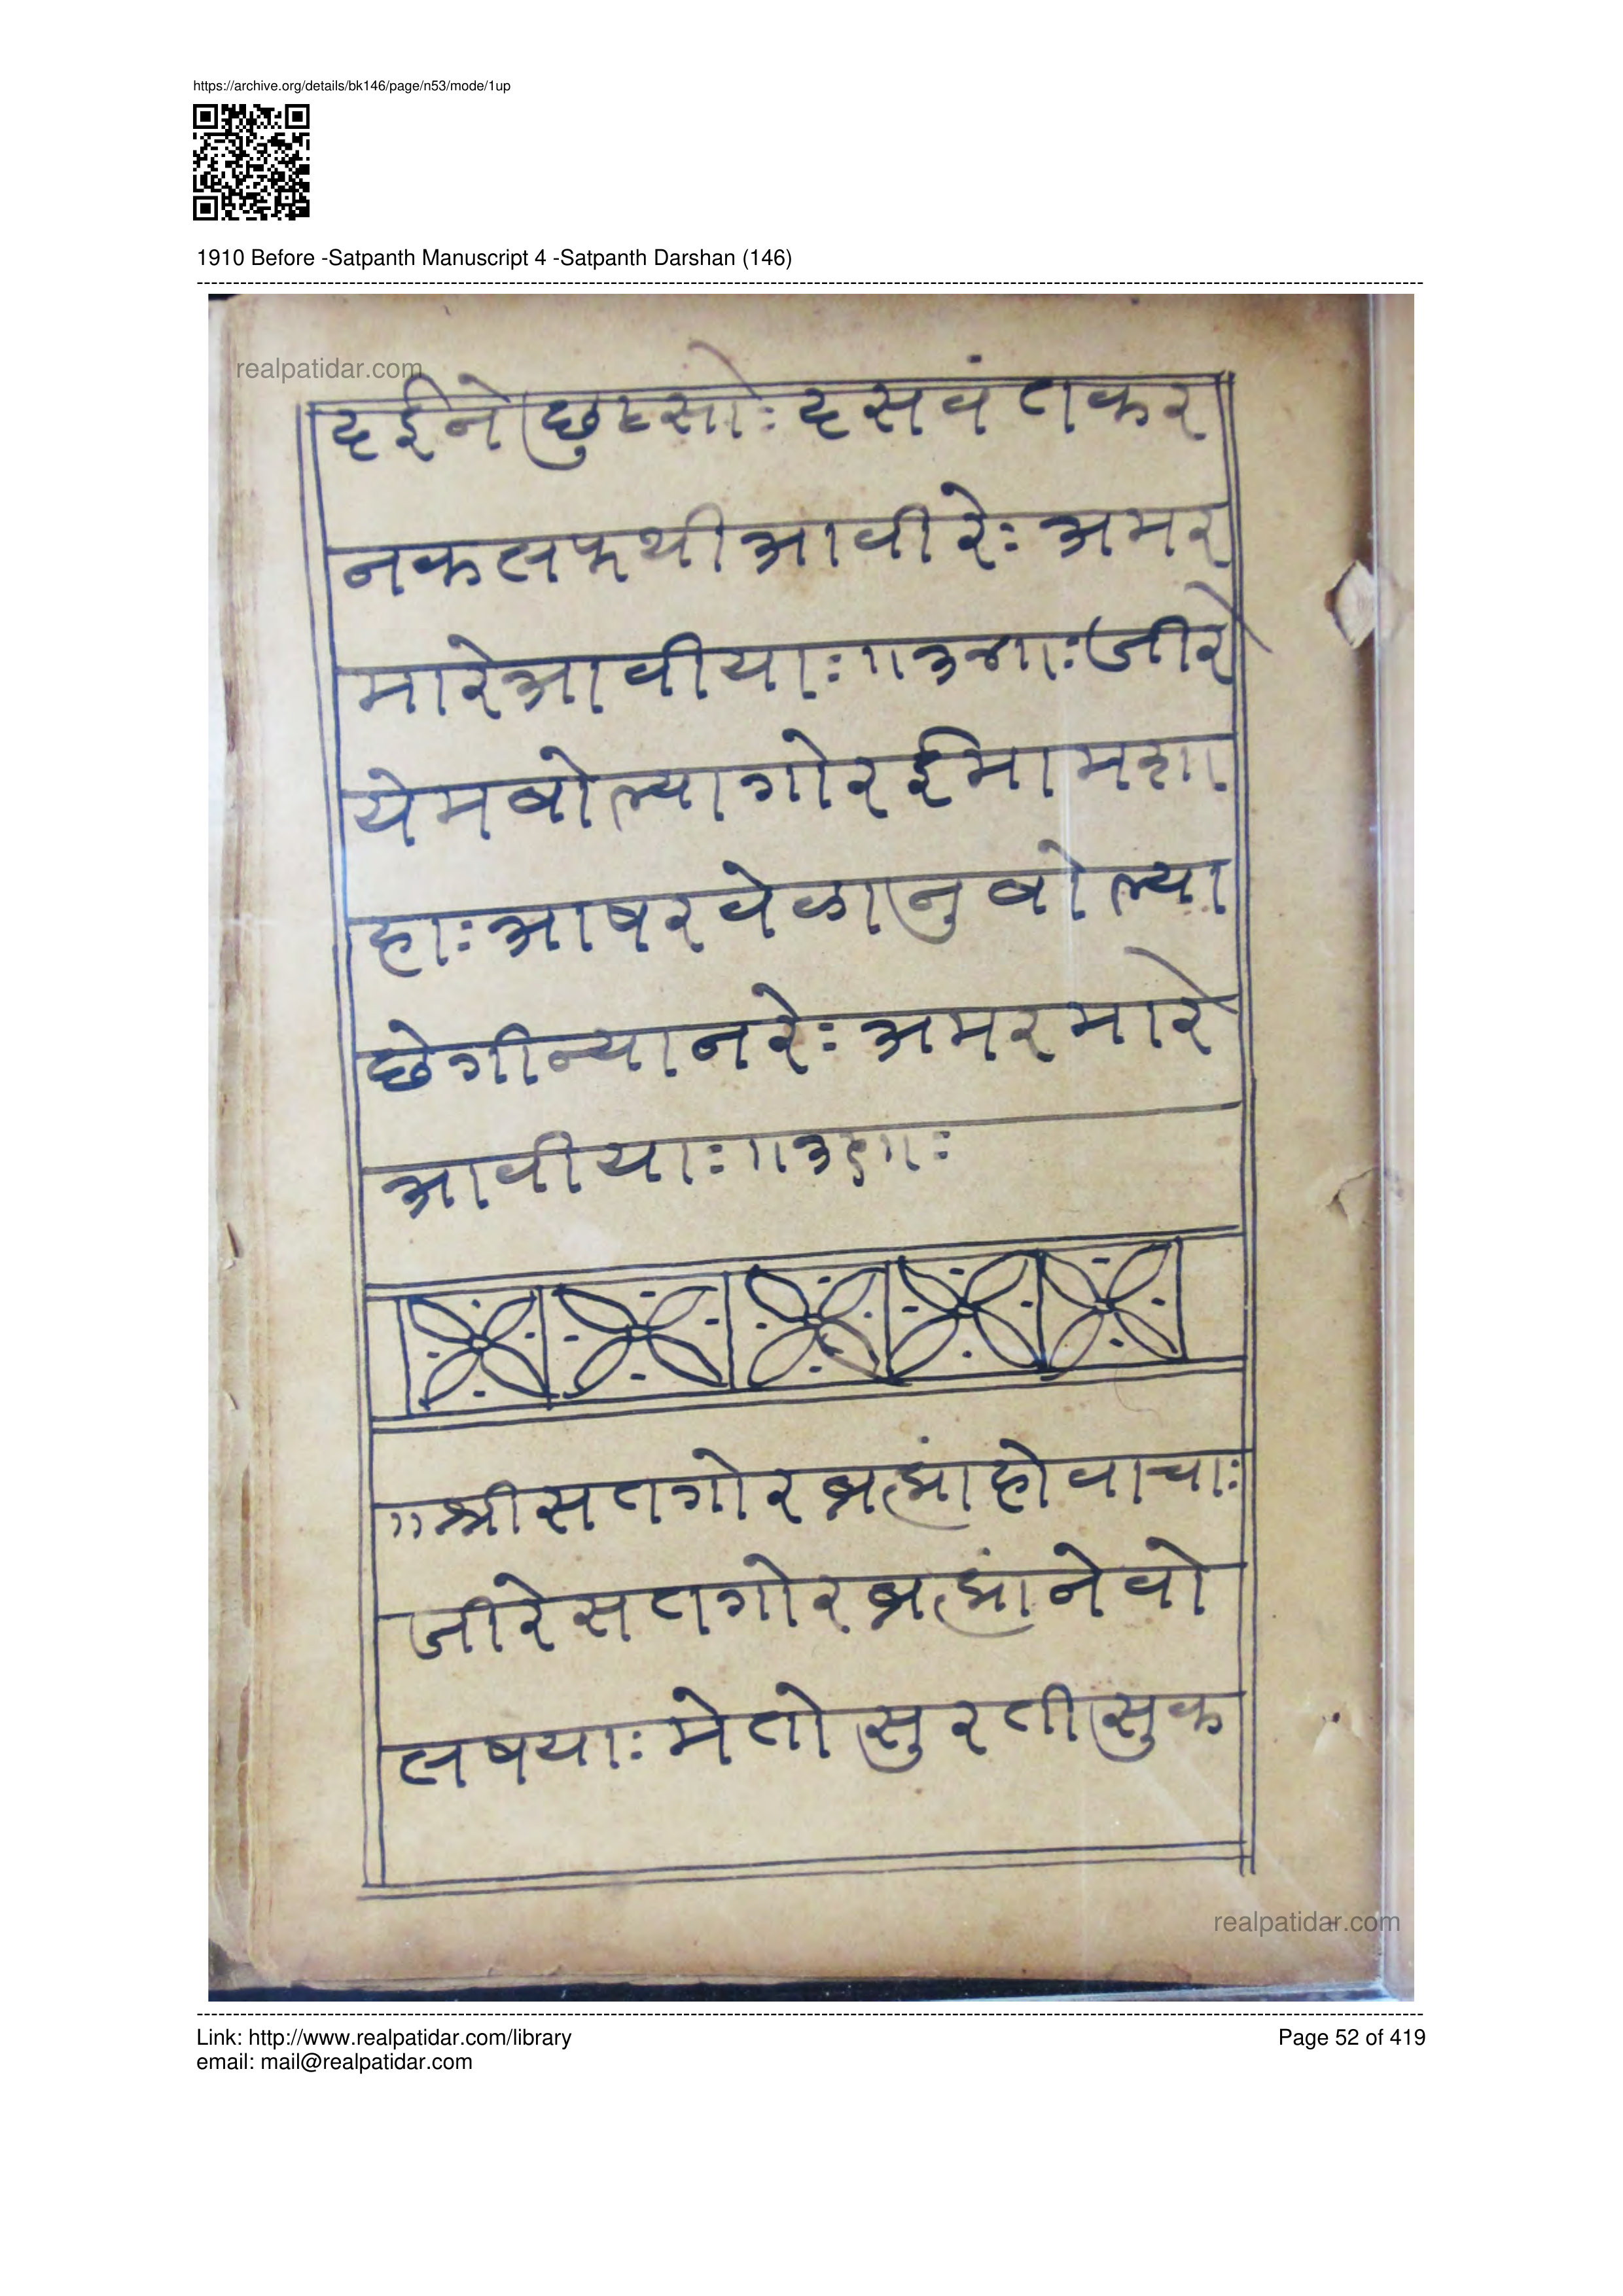 https://archive.org/details/bk146/page/n53/mode/1up
1910 Before -Satpanth Manuscript 4 -Satpanth Darshan (146)
realpatidar.com
दईने छुटसोः दसवंतकर
नकलफथीआवीरेः अमर
मारेआवीयाः ॥ जीरे
येमबोल्यागोरईमामशा
हाः आषरवेळानुबोल्या
छेगीन्यानरेः अमरमारे
आवीयाः
॥श्रीसतगोरब्रह्मांहोवाचाः
जीरेसतगोरब्रह्मांनेवो
लषयाः मेतोसुरतीसुक
realpatidar.com
Link: http://www.realpatidar.com/library
Page 52 of 419
email: mail@realpatidar.com